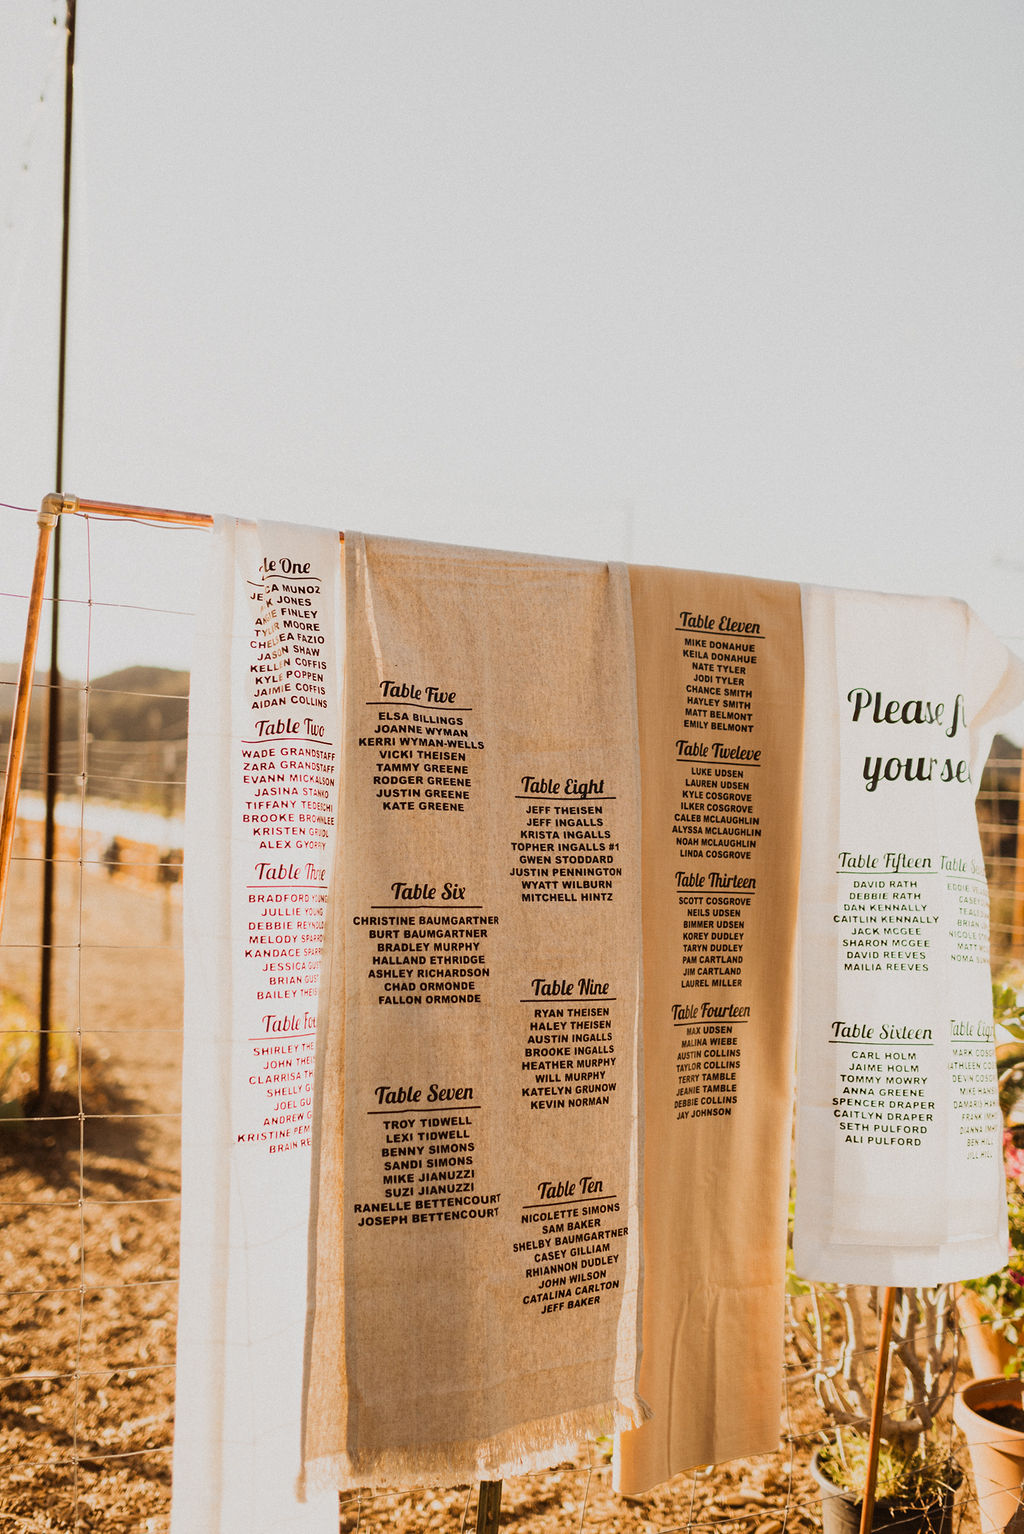 One
MUNOZ
JONES
FINLEY
MOORE
CHELSEA FAZIO
JASON SHAW
KELLEN COFFIS
KYLE POPPEN
JAIMIE COFFIS
AIDAN COLLINS
Table Two
WADE GRANDSTAFF
ZARA GRANDSTAFF
EVANN MICKALSON
JASINA STANKO
TIFFANY TEDESCHI
BROOKE BROWNLEE
KRISTEN
ALEX GYORFY
Table Three
BRADFORD YOUNG
JULLIE YOUNG
DEBBIE
MELODY
KANDACE
JESSICA
BRIAN
BAILEY
Table
SHIRLEY
JOHN
CLARRISA
SHELLY
JOEL
ANDREW
KRISTINE
BRAIN
Table Five
ELSA BILLINGS
JOANNE WYMAN
KERRI WYMAN-WELLS
VICKI THEISEN
TAMMY GREENE
RODGER GREENE
JUSTIN GREENE
KATE GREENE
Table Six
CHRISTINE BAUMGARTNER
BURT BAUMGARTNER
BRADLEY MURPHY
HALLAND ETHRIDGE
ASHLEY RICHARDSON
CHAD ORMONDE
FALLON ORMONDE
Table Seven
TROY TIDWELL
LEXI TIDWELL
BENNY SIMONS
SANDI SIMONS
MIKE JIANUZZI
SUZI JIANUZZI
RANELLE BETTENCOURT
JOSEPH BETTENCOURT
Table Eight
JEFF THEISEN
JEFF INGALLS
KRISTA INGALLS
TOPHER INGALLS #1
GWEN STODDARD
JUSTIN PENNINGTON
WYATT WILBURN
MITCHELL HINTZ
Table Nine
RYAN THEISEN
HALEY THEISEN
AUSTIN INGALLS
BROOKE INGALLS
HEATHER MURPHY
WILL MURPHY
KATELYN GRUNOW
KEVIN NORMAN
Table Ten
NICOLETTE SIMONS
SAM BAKER
SHELBY BAUMGARTNER
CASEY GILLIAM
RHIANNON DUDLEY
JOHN WILSON
CATALINA CARLTON
JEFF BAKER
Table Eleven
MIKE DONAHUE
KEILA DONAHUE
NATE TYLER
JODI TYLER
CHANCE SMITH
HAYLEY SMITH
MATT BELMONT
EMILY BELMONT
Table Tweleve
LUKE UDSEN
LAUREN UDSEN
KYLE COSGROVE
ILKER COSGROVE
CALEB MCLAUGHLIN
ALYSSA MCLAUGHLIN
NOAH MCLAUGHLIN
LINDA COSGROVE
Table Thirteen
SCOTT COSGROVE
NEILS UDSEN
BIMMER UDSEN
KOREY DUDLEY
TARYN DUDLEY
PAM CARTLAND
JIM CARTLAND
LAUREL MILLER
Table Fourteen
MAX UDSEN
MALINA WIEBE
AUSTIN COLLINS
TAYLOR COLLINS
TERRY TAMBLE
JEANIE TAMBLE
DEBBIE COLLINS
JAY JOHNSON
Please
Table Fifteen
DAVID RATH
DEBBIE RATH
DAN KENNALLY
CAITLIN KENNALLY
JACK MCGEE
SHARON MCGEE
DAVID REEVES
MAILIA REEVES
Table Sixteen
CARL HOLM
JAIME HOLM
TOMMY MOWRY
ANNA GREENE
SPENCER DRAPER
CAITLYN DRAPER
SETH PULFORD
ALI PULFORD
Table
EDDIE
CASEY
BRIAN
MATT
Table
MARK
DEVIN
MIKE
DAMARIS
FRANK
DIANNA
BEN HILL
JILL HILL